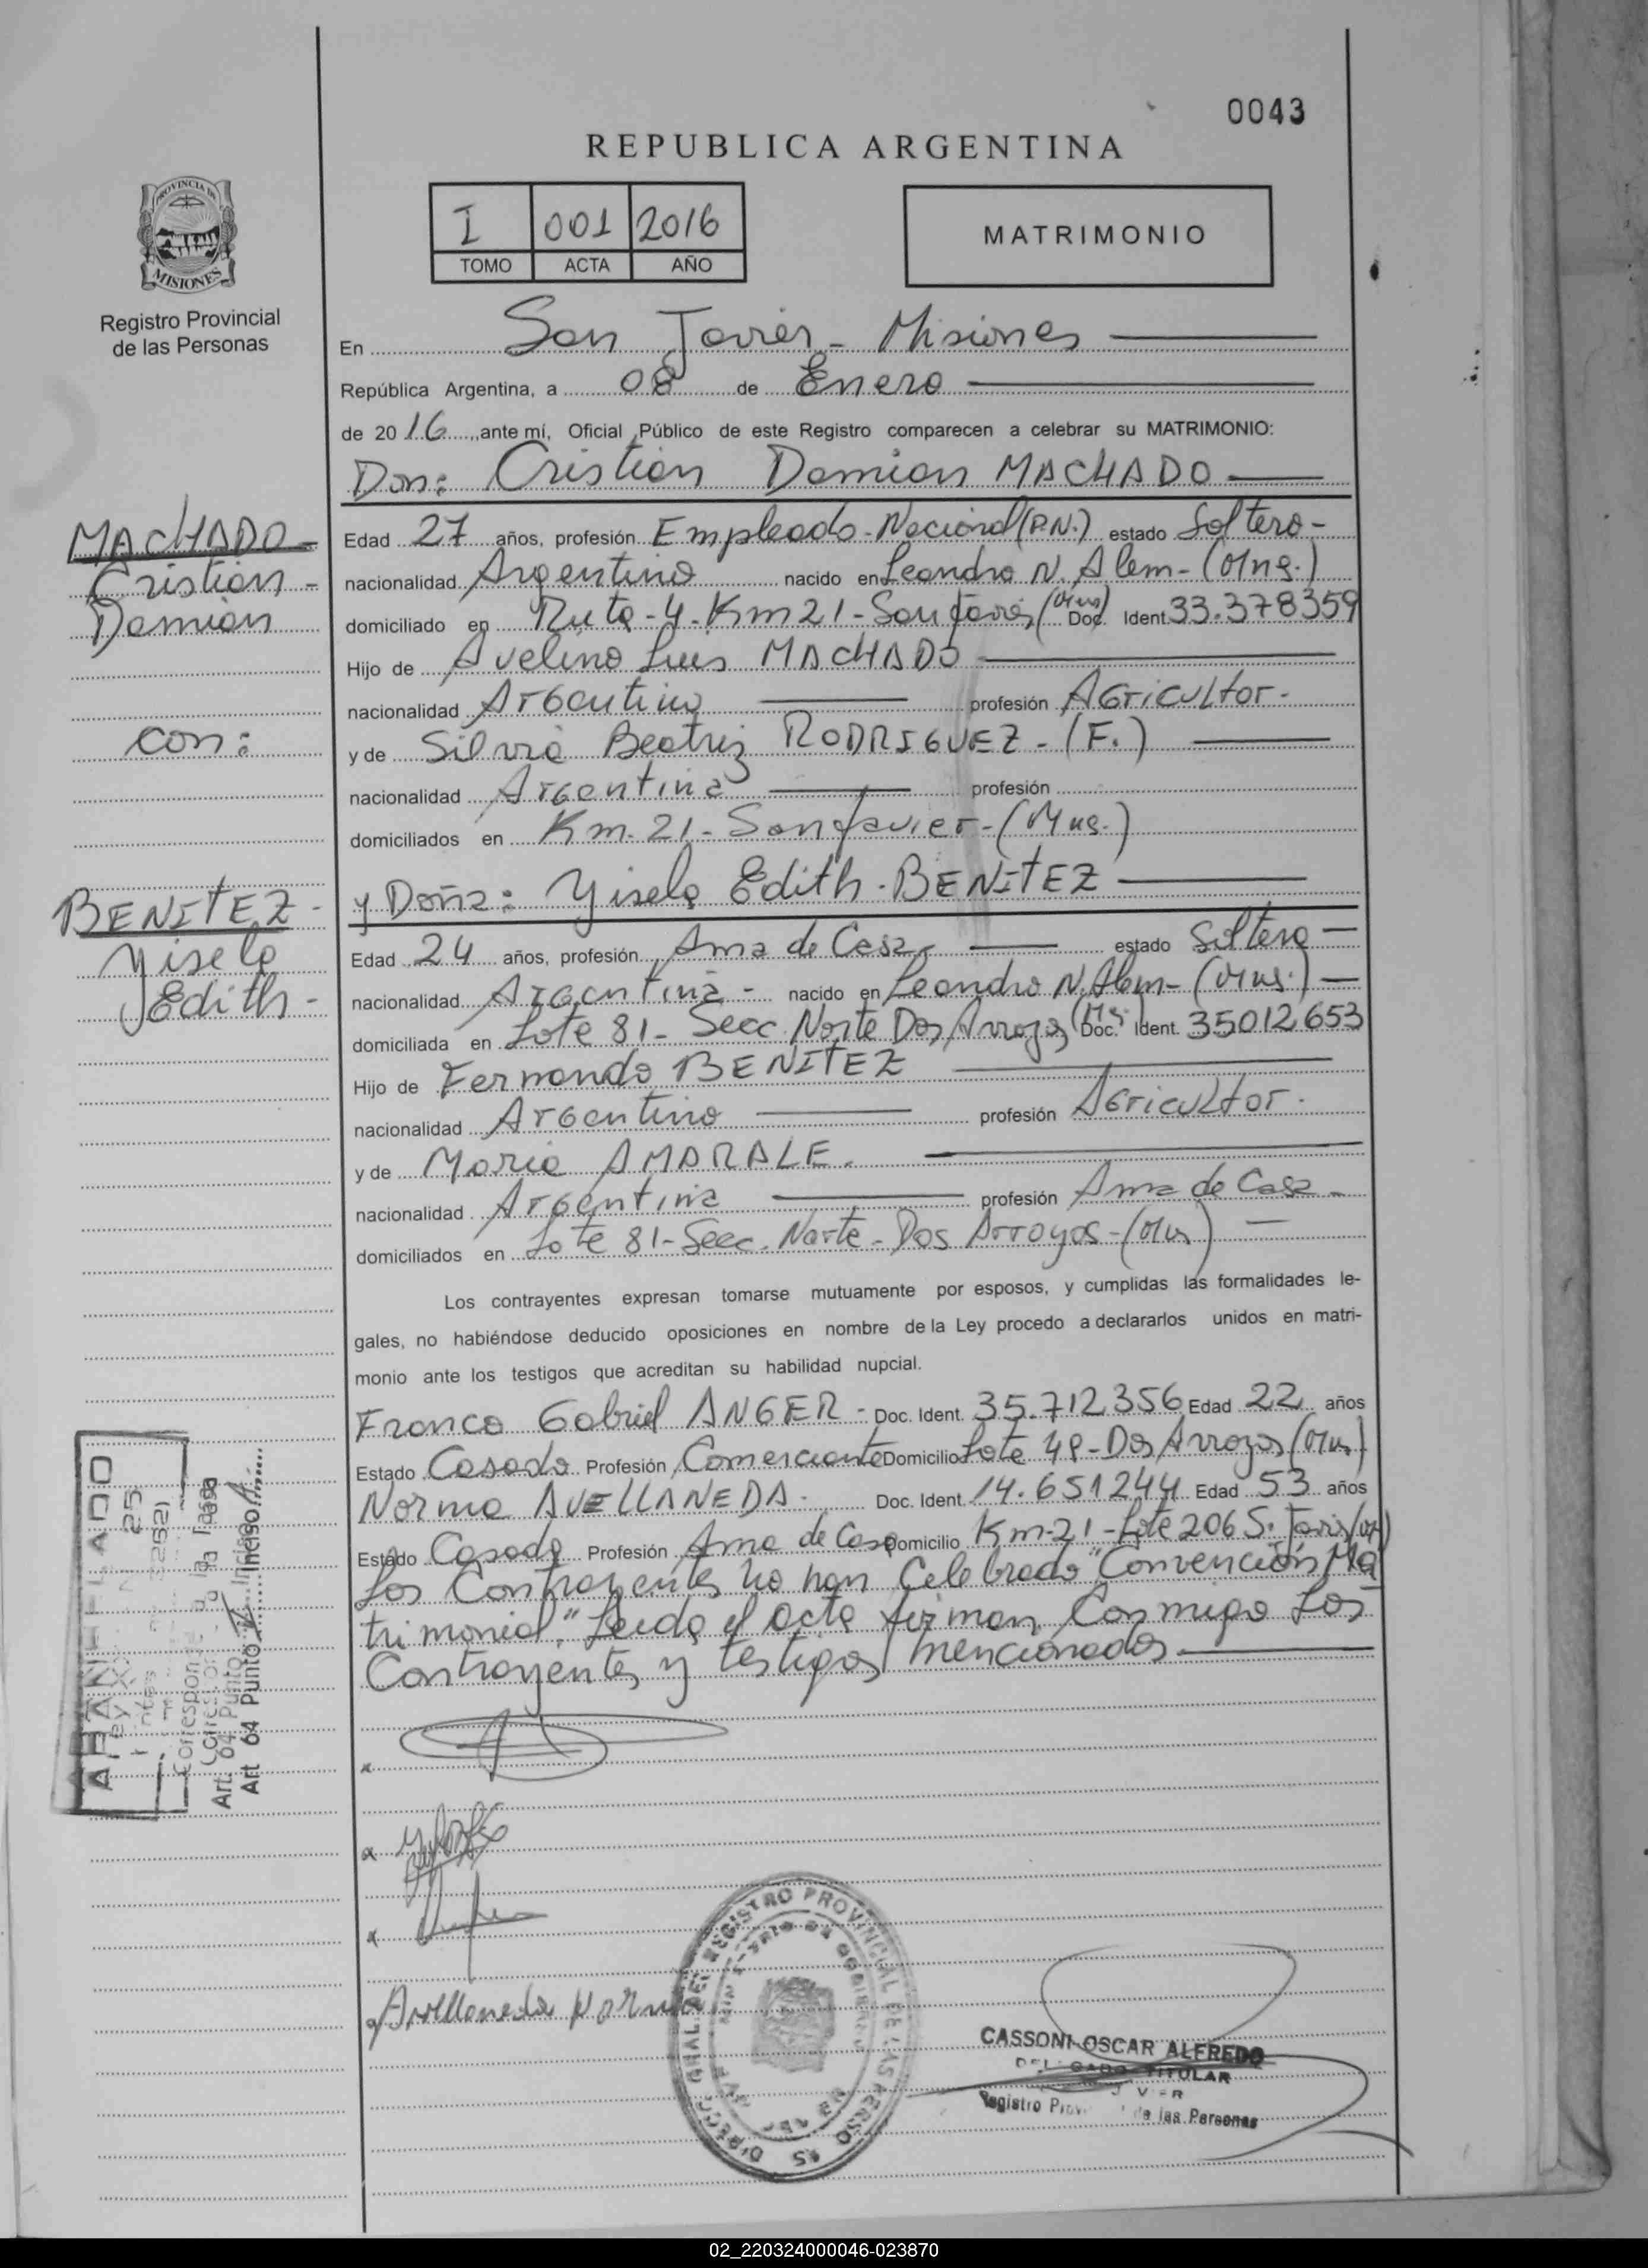 0043
REPUBLICA ARGENTINA
PROVINCIA DE
MISIONES
Registro Provincial
de las Personas
I 001 2016
TOMO ACTA AÑO
MATRIMONIO
En San Javier - Misiones
República Argentina, a 08 de Enero
de 2016, ante mí, Oficial Público de este Registro comparecen a celebrar su MATRIMONIO:
Don: Cristian Damian MACHADO
MACHADO
Cristian
Damian
con:
BENITEZ
Yisela
Edith
Edad 27 años, profesión Empleado Nacional (P.N.) estado Soltero
nacionalidad Argentino nacido en Leandro N. Alem - (Mns.)
domiciliado en Ruta - 4 - Km 21 - San Javier (Mns) Doc. Ident. 33.378359
Hijo de Avelino Luis MACHADO
nacionalidad Argentino profesión Agricultor.
y de Silvia Beatriz RODRIGUEZ - (F.)
nacionalidad Argentina profesión
domiciliados en Km. 21 - San Javier - (Mns.)
y Doña: Yisela Edith BENITEZ
Edad 24 años, profesión Ama de Casa estado Soltera
nacionalidad Argentina - nacido en Leandro N. Alem - (Mns.)
domiciliada en Lote 81 - Secc. Norte Dos Arroyos Doc. Ident. 35012653
Hijo de Fernando BENITEZ
nacionalidad Argentino profesión Agricultor.
y de Maria AMARALE.
nacionalidad Argentina profesión Ama de Casa
domiciliados en Lote 81 - Secc. Norte - Dos Arroyos - (Mns)
Los contrayentes expresan tomarse mutuamente por esposos, y cumplidas las formalidades le-
gales, no habiéndose deducido oposiciones en nombre de la Ley procedo a declararlos unidos en matri-
monio ante los testigos que acreditan su habilidad nupcial.
Franco Gabriel ANGER - Doc. Ident. 35.712356 Edad 22 años
Estado Casado Profesión Comerciante Domicilio Lote - Dos Arroyos (Mns)
Norma AVELLANEDA. Doc. Ident. 14.651244 Edad 53 años
Estado Casada Profesión Ama de Casa Domicilio Km-21 - Lote 206 S. Javier
Los Contrayentes no han Celebrado "Convención Ma
trimonial." Leida el acta firman Conmigo Los
Contrayentes y testigos mencionados.
Corresponde a la Tasa
Art. 64 Punto Inciso
Avellaneda Norma
DIRECC. GRAL. DEL REGISTRO PROVINCIAL DE LAS PERSONAS
CASSONI OSCAR ALFREDO
DELEGADO TITULAR
Registro Prov. de las Personas
02_220324000046-023870